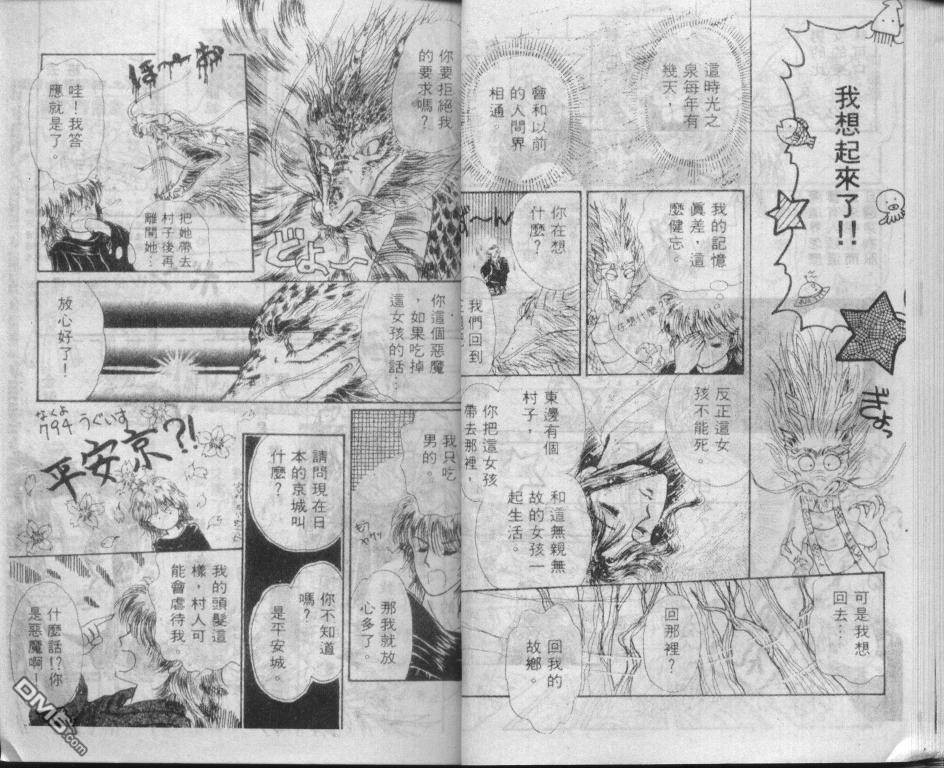 我想起來了!!
ぎょっ
這時光之
泉每年有
幾天，
會和以前
的人間界
相通。
我的記憶
真差，這
麼健忘。
在想什麼
你在想
什麼？
我們回到
反正這女
孩不能死。
東邊有個
村子，
你把這女孩
帶去那裡，
和這無親無
故的女孩一
起生活。
可是我想
回去…
回那裡？
回我的
故鄉。
你要拒絕我
的要求嗎？
どょ〜
哇！我答
應就是了。
把她帶去
村子後再
離開她…
你這個惡魔
，如果吃掉
這女孩的話…
放心好了！
我只吃
男的。
那我就放
心多了。
請問現在日
本的京城叫
什麼？
你不知道
嗎？
是平安城。
なくよ
794 うぐいす
平安京?!
我的頭髮這
樣，村人可
能會虐待我。
什麼話!?你
是惡魔啊！
DM5.com